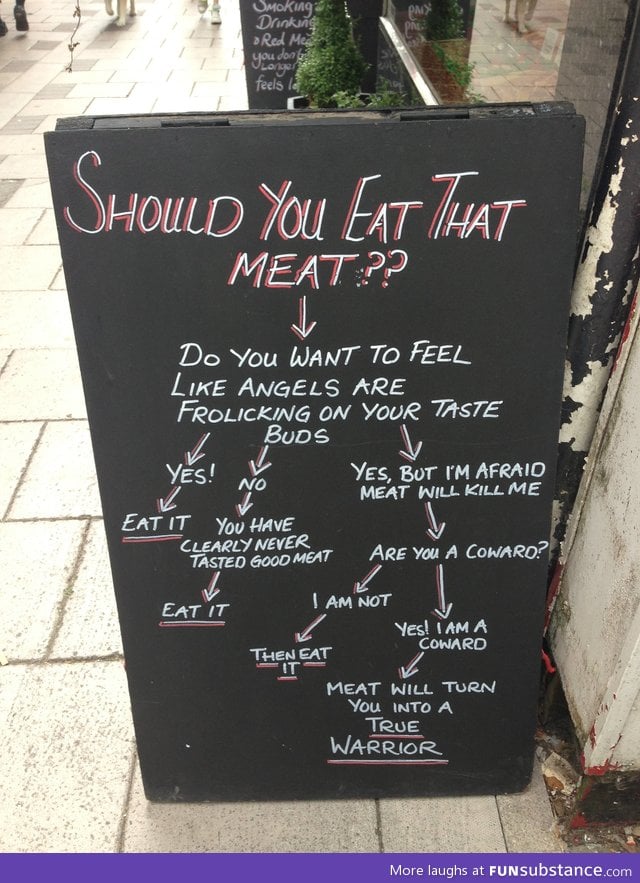 Smoking
Drinking
Red Me
you don't
Longer
feels lo
SHOULD YOU EAT THAT
MEAT??
DO YOU WANT TO FEEL
LIKE ANGELS ARE
FROLICKING ON YOUR TASTE
BUDS
YES!
NO
YES, BUT I'M AFRAID
MEAT WILL KILL ME
EAT IT
YOU HAVE
CLEARLY NEVER
TASTED GOOD MEAT
ARE YOU A COWARD?
EAT IT
I AM NOT
YES! I AM A
COWARD
THEN EAT
IT
MEAT WILL TURN
YOU INTO A
TRUE
WARRIOR
More laughs at FUNsubstance.com